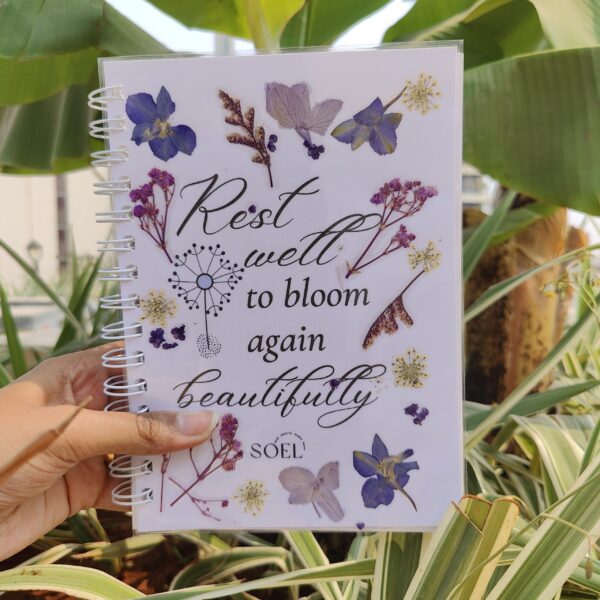 Rest
well
to bloom
again
beautifully
SOEL